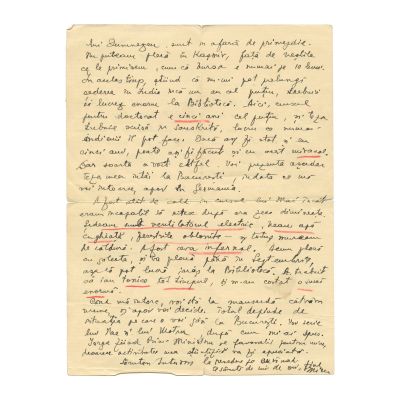 lui Dumnezeu, sunt în afară de primejdie.
Nu puteam pleca în Kashmir, față de veștile
ce le primisem, cum că bursa e numai pe 10 luni.
În același timp, știind că mi-aș pot prelungi
șederea în India încă un an cel puțin, trebuie
să lucrez enorm la Bibliotecă. Aici, cursul
pentru doctorat e cinci ani cel puțin, și teza
trebuie scrisă în sanskrită, lucru ce numai
indienii îl pot face. Dacă aș fi stat și eu
cinci ani, poate aș fi făcut și eu
Dar soarta a voit altfel. Voi prezenta
teza mea întâi la București, îndată ce mă
voi întoarce, apoi în Germania.
A fost atât de cald în cursul lui Mai încât
eram incapabil să citesc după ora zece dimineața.
Ședeam sub ventilatorul electric, beam apă
cu ghiață, ferestrele oblonite - și totuși muream
de căldură. A fost ceva infernal. Acum plouă
cu găleata, și va ploua până în Septembrie,
așa că pot lucra iarăși la Bibliotecă. A trebuit
să iau tonice tot timpul, și m-au costat o sumă
enormă.
Când mă întorc, voi sta la mansardă câtva
vreme, și apoi voi decide. Totul depinde de
situația pe care o voi găsi la București. Voi scrie
lui Nae și lui Motru, după cum mi-ai spus.
Iorga fiind Prim-Ministru e favorabil pentru mine,
deoarece activitatea mea științifică va fi apreciată.